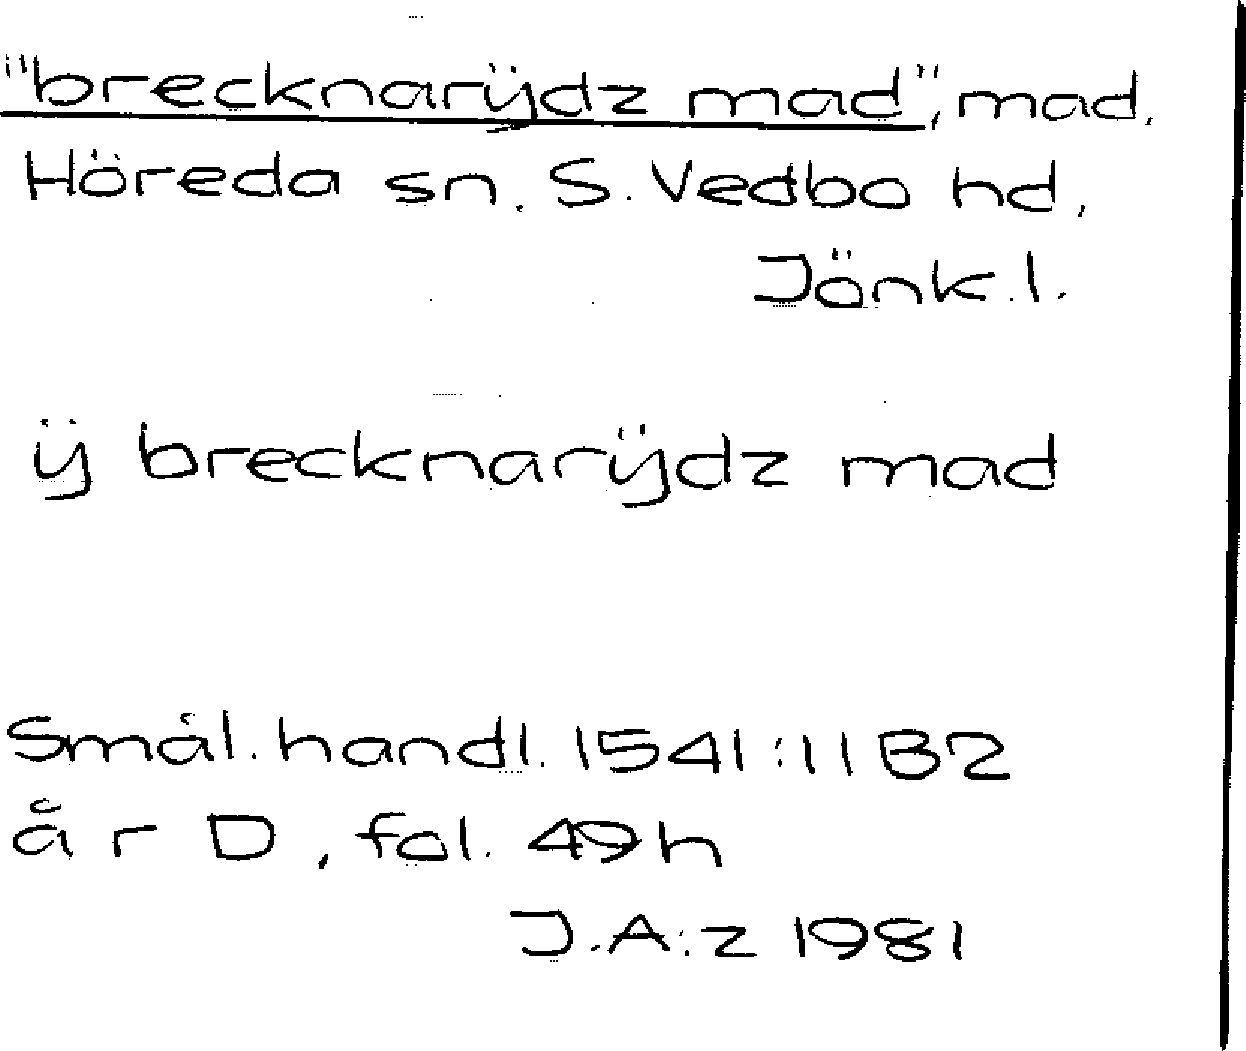 "brecknarÿdz mad", mad,
Höreda sn. S. Vedbo hd,
Jönk.l.
ÿ brecknarÿdz mad
Smål. handl. 1541:11 B2
år D, fol. 49h
J.A:z 1981